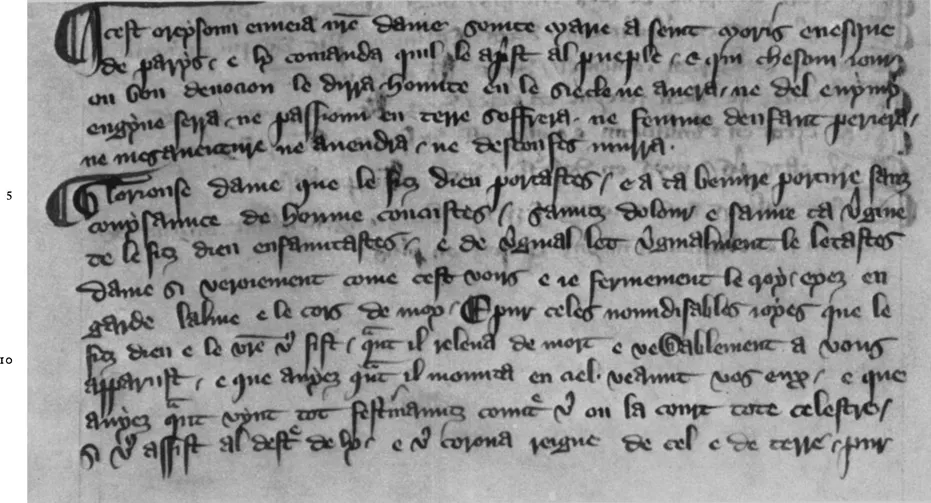 Cest oreysoun enveia nr̄e dame seinte marie a seint moris evesqe
de parys / e ly comanda quil le aprst al pueple / e qui chescun iour
ou bon devocion le dirra hounte en le siecle ne avera / ne del enymy
engyne serra / ne passioun en terre soffrera . ne femme denfant periera /
ne mesaventure ne avendra / ne desconfes murra .
5 Gloriouse dame que le fiz dieu portastes / e a ta beneure porture sanz
conysaunce de homme conceustes / sanz dolour e sanue ta vgine
te le fiz dieu enfauntastes / e de vginal let vginalment le letastes
dame si veroiement come cest vous e ie fermement le croy / eyez en
garde lalme e le cors de moy / E pur celes noundisables ioyes que le
10 fiz dieu e le vr̄e vꝰ fist / qnt il releva de mort e veritablement a vous
apparust / e que avyez qnt il mounta en ciel . veaunt vos euz / e que
avyez qnt vynt tot festinaunz contre vꝰ ou la court tote celestre /
si vꝰ assist al destre de ly / e vꝰ corona reigne de cel e de terre / pur